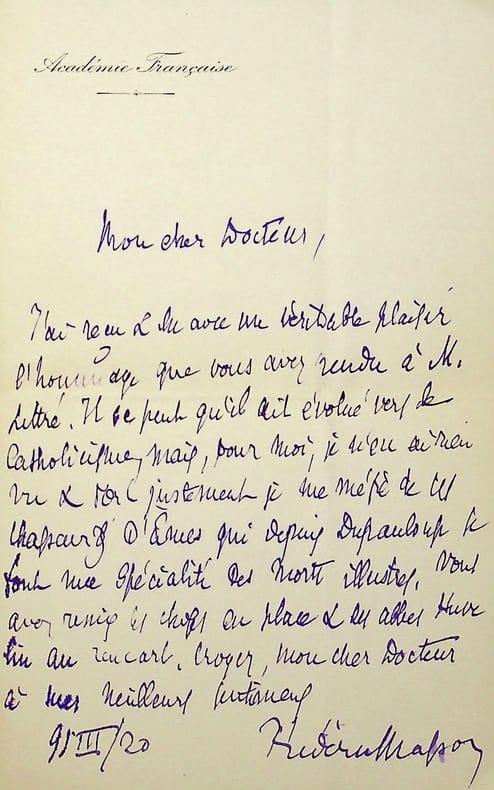 Académie Française
Mon cher Docteur,
J'ai reçu & lu avec un véritable plaisir
l'hommage que vous avez rendu à M.
Littré. Il se peut qu'il ait évolué vers le
Catholicisme, mais, pour moi, je n'en ai rien
vu & très justement je me méfie de ces
chasseurs d'Âmes qui depuis Dupanloup se
font une spécialité des morts illustres. Vous
avez remis les choses en place & les abbés Huve
lin au rancart. Croyez, mon cher Docteur
à mes meilleurs sentiments
III/20
Frédéric Masson